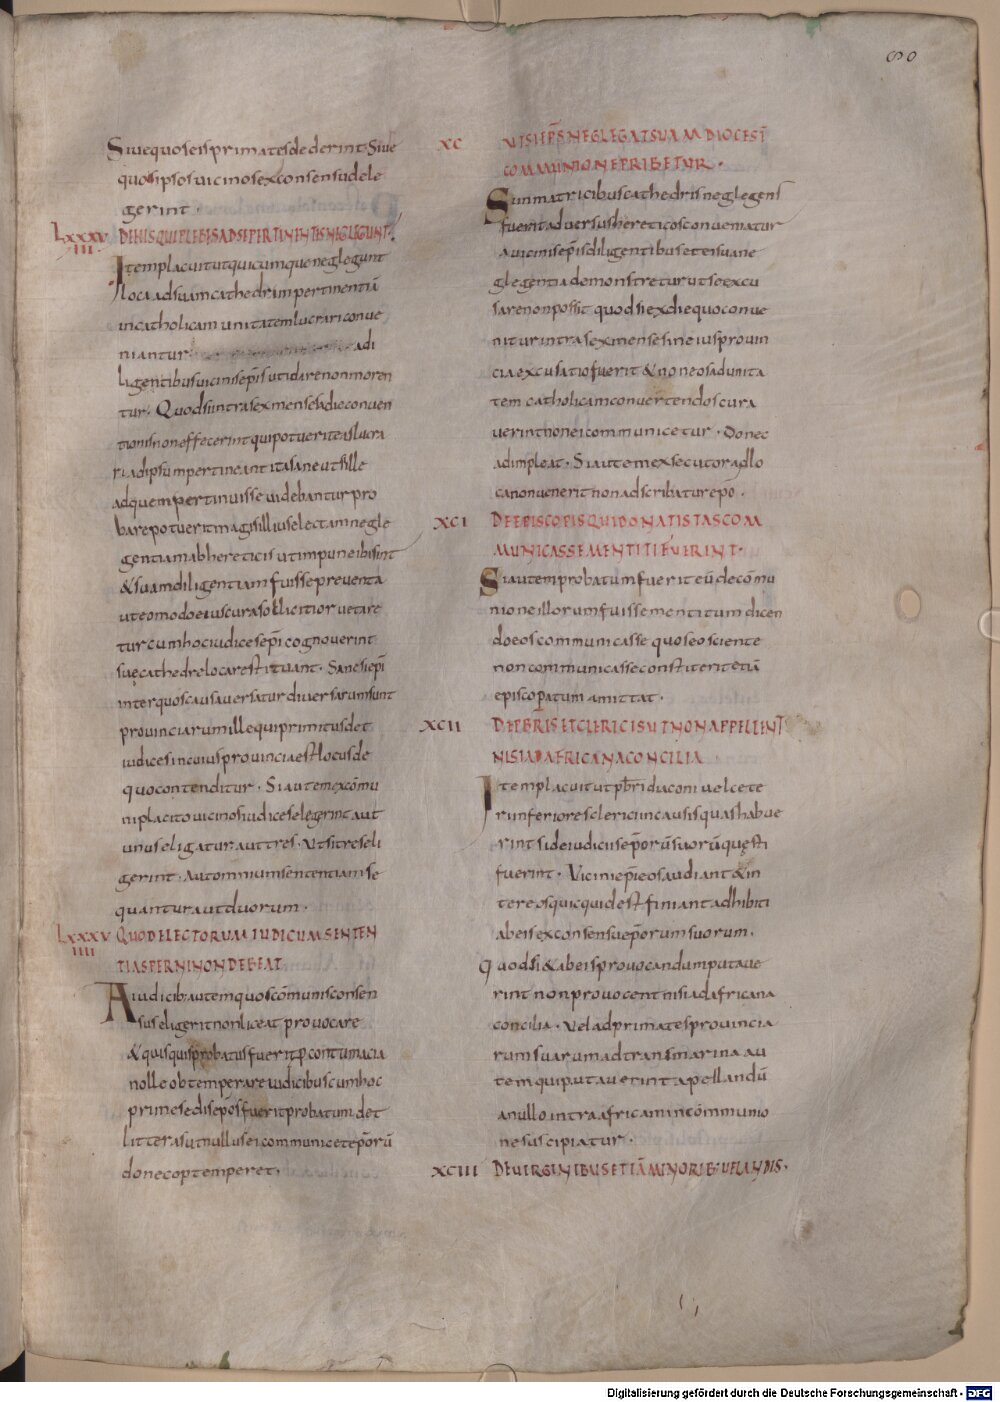 60
Siue quos eis primates dederint Siue
quos ipsos uicinos ex consensu dele
gerint.
LXXXVIII DE HIS QUI PLEBES AD SE PERTINENTES NEGLEGUNT.
Item placuit ut quicumque neglegunt
loca ad suam cathedrã pertinentiã
in catholicam unitatem lucrari conue
niantur a di
ligentibus uicinis ep̃is ut id agere non moren
tur. Quod si intra sex menses a die conuen
tionis non effecerint qui potuerit eas lucra
ri ad ipsum pertineant ita sane ut si ille
ad quem pertinuisse uidebantur pro
bare potuerit magis illius electam negle
gentiam ab hereticis ut impune ibi sint
& suam diligentiam fuisse preuenta
ut eo modo eius cura sollicitior uetare
tur cum hoc iudices ep̃i cognouerint
suę cathedre loca restituant. Sane si ep̃i
inter quos causa uersatur diuersarum sunt
prouinciarum ille qui primitus det
iudices in cuius prouincia est locus de
quo contenditur. Si autem ex cõmu
ni placito uicinos iudices elegerint aut
unus eligatur aut tres. Ut si tres eli
gerint. Aut omnium sententiam se
quantur aut duorum.
LXXXVIIII QUOD ELECTORUM IUDICUM SENTEN
TIA SPERNI NON DEBEAT
A iudicib; autem quos cõmunis consen
sus eligerit non liceat prouocare
& quisquis probatus fuerit p contumacia
nolle obtemperare iudicibus cum hoc
prime sedis ep̃os fuerit probatum det
litteras ut nullus ei communicet ep̃orũ
donec optemperet.
XC UT SI EPS NEGLEGAT SUAM DIOCESĨ
COMMUNIONE PRIBETUR.
Si in matricibus cathedris neglegens
fuerit aduersus hereticos conueniatur
a uicinis ep̃is diligentibus et ei sua ne
glegentia demonstretur ut se excu
sare non possit quod si ex die quo conue
nitur intra sex menses in eius prouin
cia excusatio fuerit & non eos ad unita
tem catholicam conuertendos cura
uerint honei communicetur. Donec
adimpleat. Si autem exsecutor ad lo
ca non uenerit non adscribatur ep̃o.
XCI DE EPISCOPIS QUI DONATISTAS COM
MUNICASSE MENTITI FUERINT.
Si autem probatum fuerit eũ de cõmu
nione illorum fuisse mentitum dicen
do eos communicasse quos eo sciente
non communicasse constiterit etiã
episcopatum amittat.
XCII DE PBRIS ET CLERICIS UT NON APPELLENT
NISI AD AFRICANA CONCILIA
Item placuit ut pbr̃i diaconi uel cete
ri inferiores clerici in causis quas habue
rint si de iudiciis ep̃orũ suorũ quęsti
fuerint. Vicini ep̃i eos audiant & in
ter eos quicquid est finiant adhibiti
ab eis ex consensu ep̃orum suorum.
Quod si & ab eis prouocandum putaue
rint non prouocent nisi ad africana
concilia. Vel ad primates prouincia
rum suarum ad transmarina au
tem qui putauerint apellandũ
a nullo intra africam in cõmmunio
ne suscipiatur.
XCIII DE UIRGINIBUS ETIÃ MINORIB; UELANDIS.
Digitalisierung gefördert durch die Deutsche Forschungsgemeinschaft - DFG